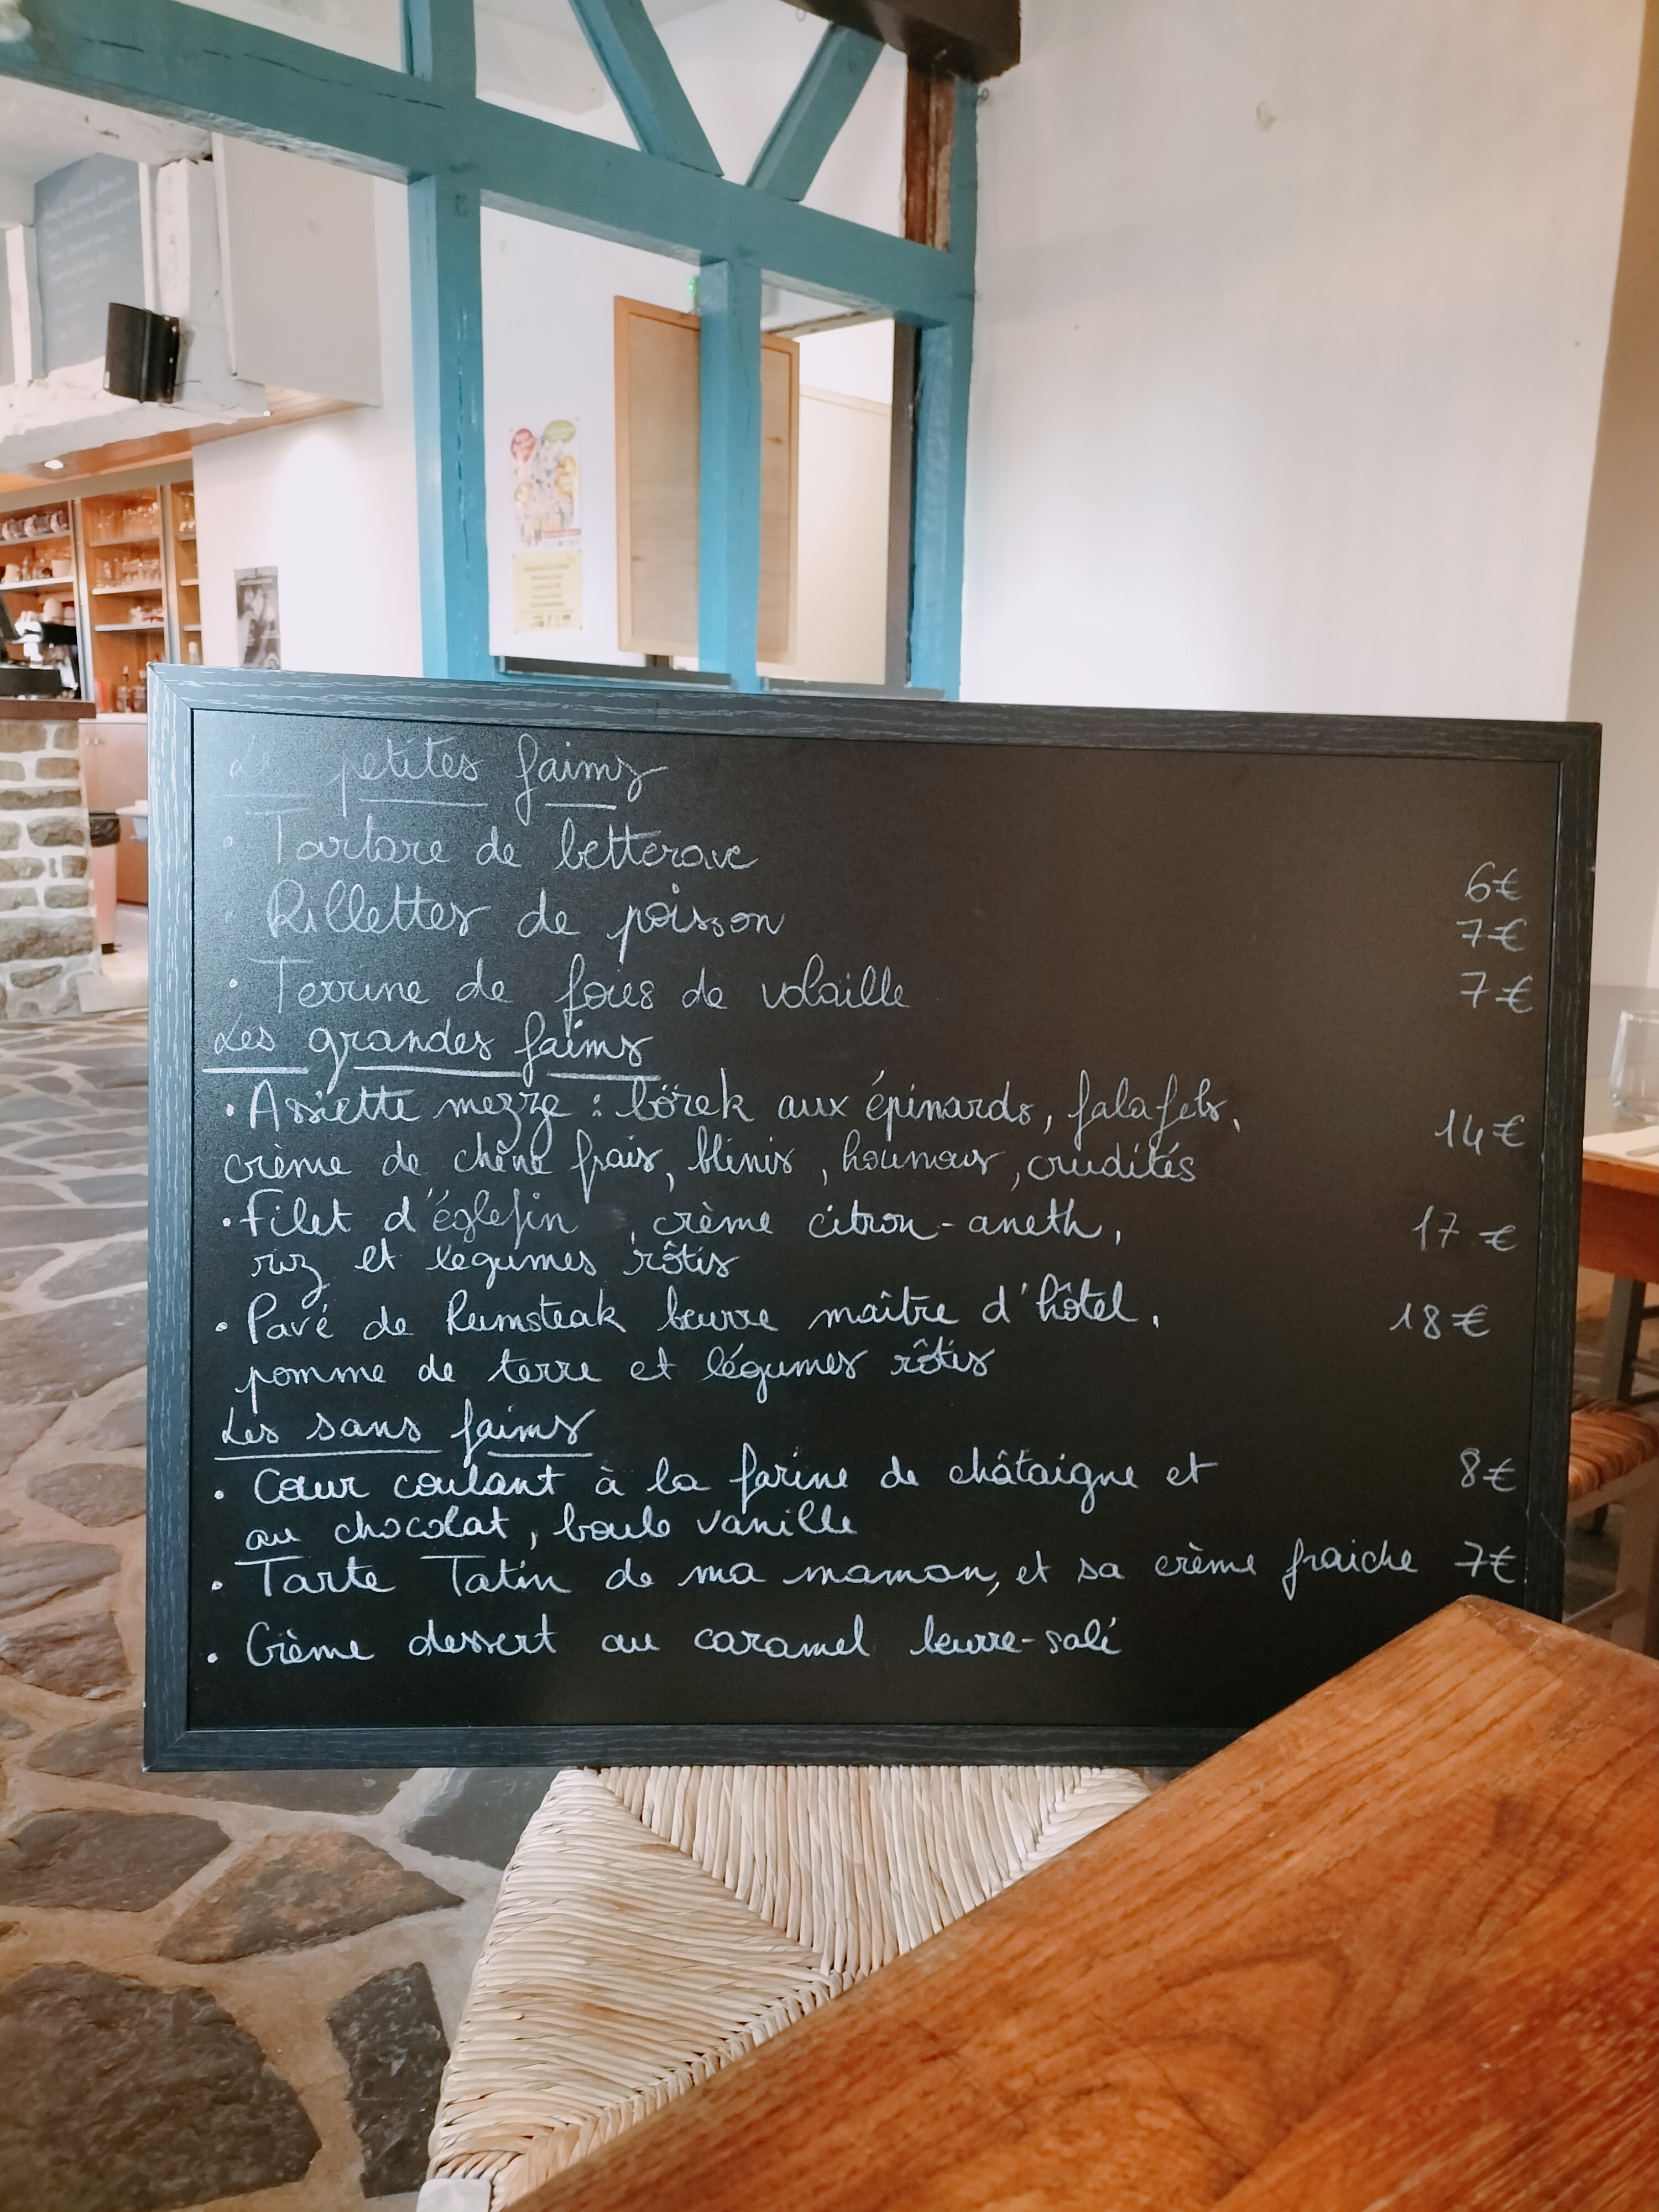 Les petites faims
· Tartare de betterave 6€
Rillettes de poisson 7€
· Terrine de foies de volaille 7€
Les grandes faims
· Assiette mezze : börek aux épinards, falafels, 14€
crème de chèvre frais, blinis, houmous, crudités
· Filet d'églefin, crème citron-aneth, 17€
riz et légumes rôtis
· Pavé de Rumsteak beurre maître d'hôtel, 18€
pomme de terre et légumes rôtis
Les sans faims
· Cœur coulant à la farine de châtaigne et 8€
au chocolat, boule vanille
· Tarte Tatin de ma maman, et sa crème fraiche 7€
· Crème dessert au caramel beurre-salé